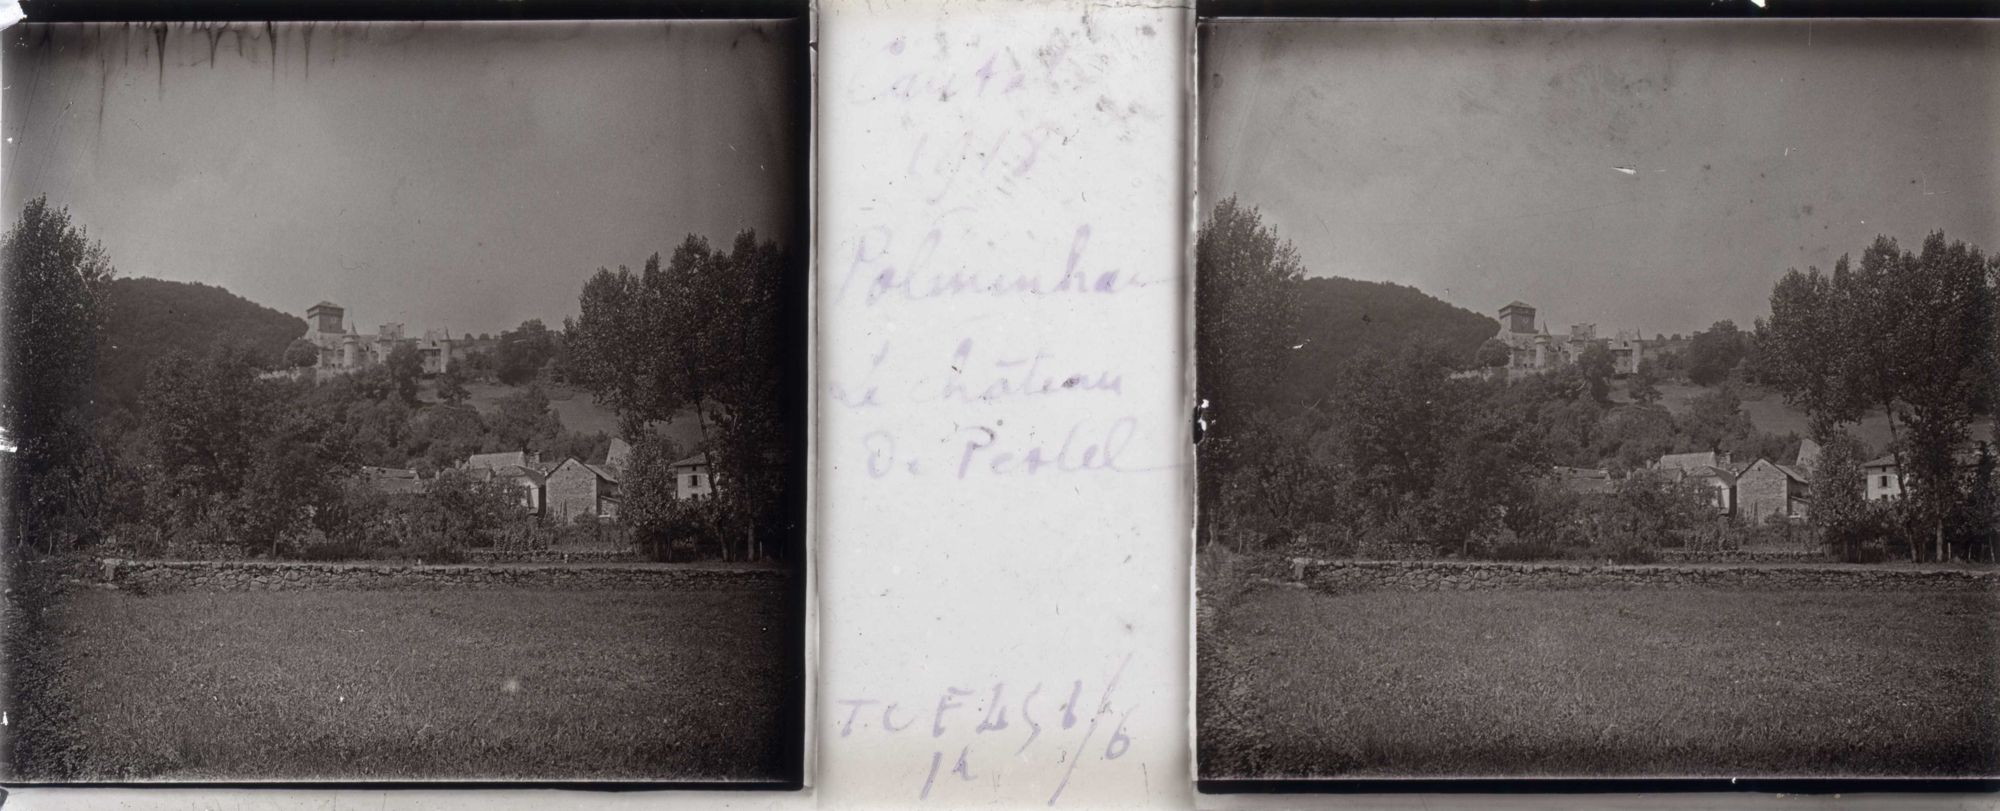 Cantal
1918
Polminhac
Le château
de Pestel
TCF